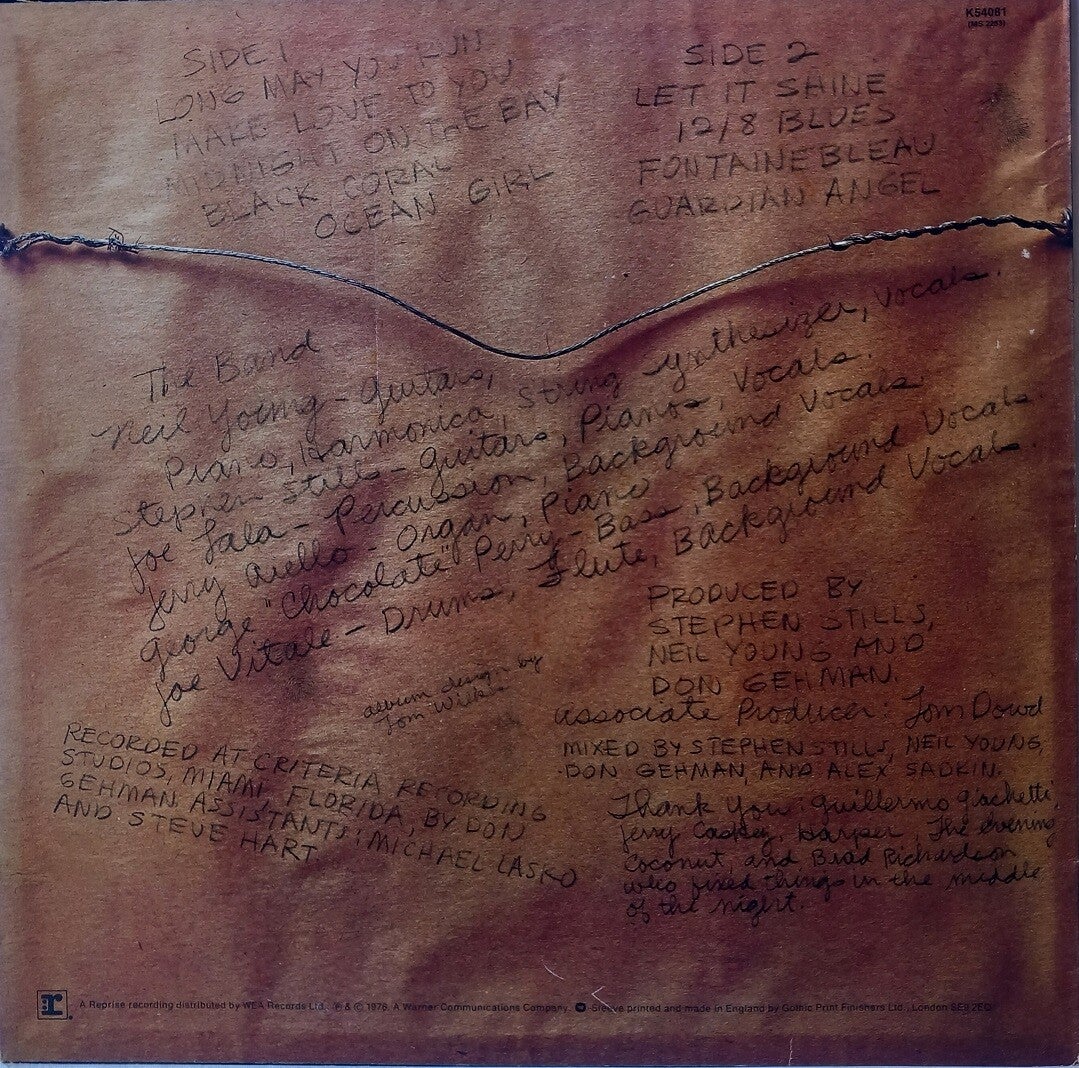 K54081
(MS 2253)
SIDE 1
LONG MAY YOU RUN
MAKE LOVE TO YOU
MIDNIGHT ON THE BAY
BLACK CORAL
OCEAN GIRL
SIDE 2
LET IT SHINE
12/8 BLUES
FONTAINEBLEAU
GUARDIAN ANGEL
The Band
Neil Young - Guitars,
Piano, Harmonica, String synthesizer, Vocals.
Stephen Stills - Guitars, Pianos, Vocals.
Joe Lala - Percussion, Background Vocals
Jerry Aiello - Organ, Piano
George "Chocolate" Perry - Bass, Background Vocals.
Joe Vitale - Drums, Flute, Background Vocals.
album design by
Tom Wilkes
PRODUCED BY
STEPHEN STILLS,
NEIL YOUNG AND
DON GEHMAN.
Associate Producer: Tom Dowd
MIXED BY STEPHEN STILLS, NEIL YOUNG,
DON GEHMAN, AND ALEX SADKIN.
RECORDED AT CRITERIA RECORDING
STUDIOS, MIAMI FLORIDA, BY DON
GEHMAN. ASSISTANTS: MICHAEL LASKO
AND STEVE HART
Thank You: Guillermo Giachetti,
Jerry Caskey, Harper, The evening
Coconut, and Brad Richardson
who fixed things in the middle
of the night.
r
A Reprise recording distributed by WEA Records Ltd. ℗ & © 1976. A Warner Communications Company. Sleeve printed and made in England by Gothic Print Finishers Ltd., London SE8 2EQ